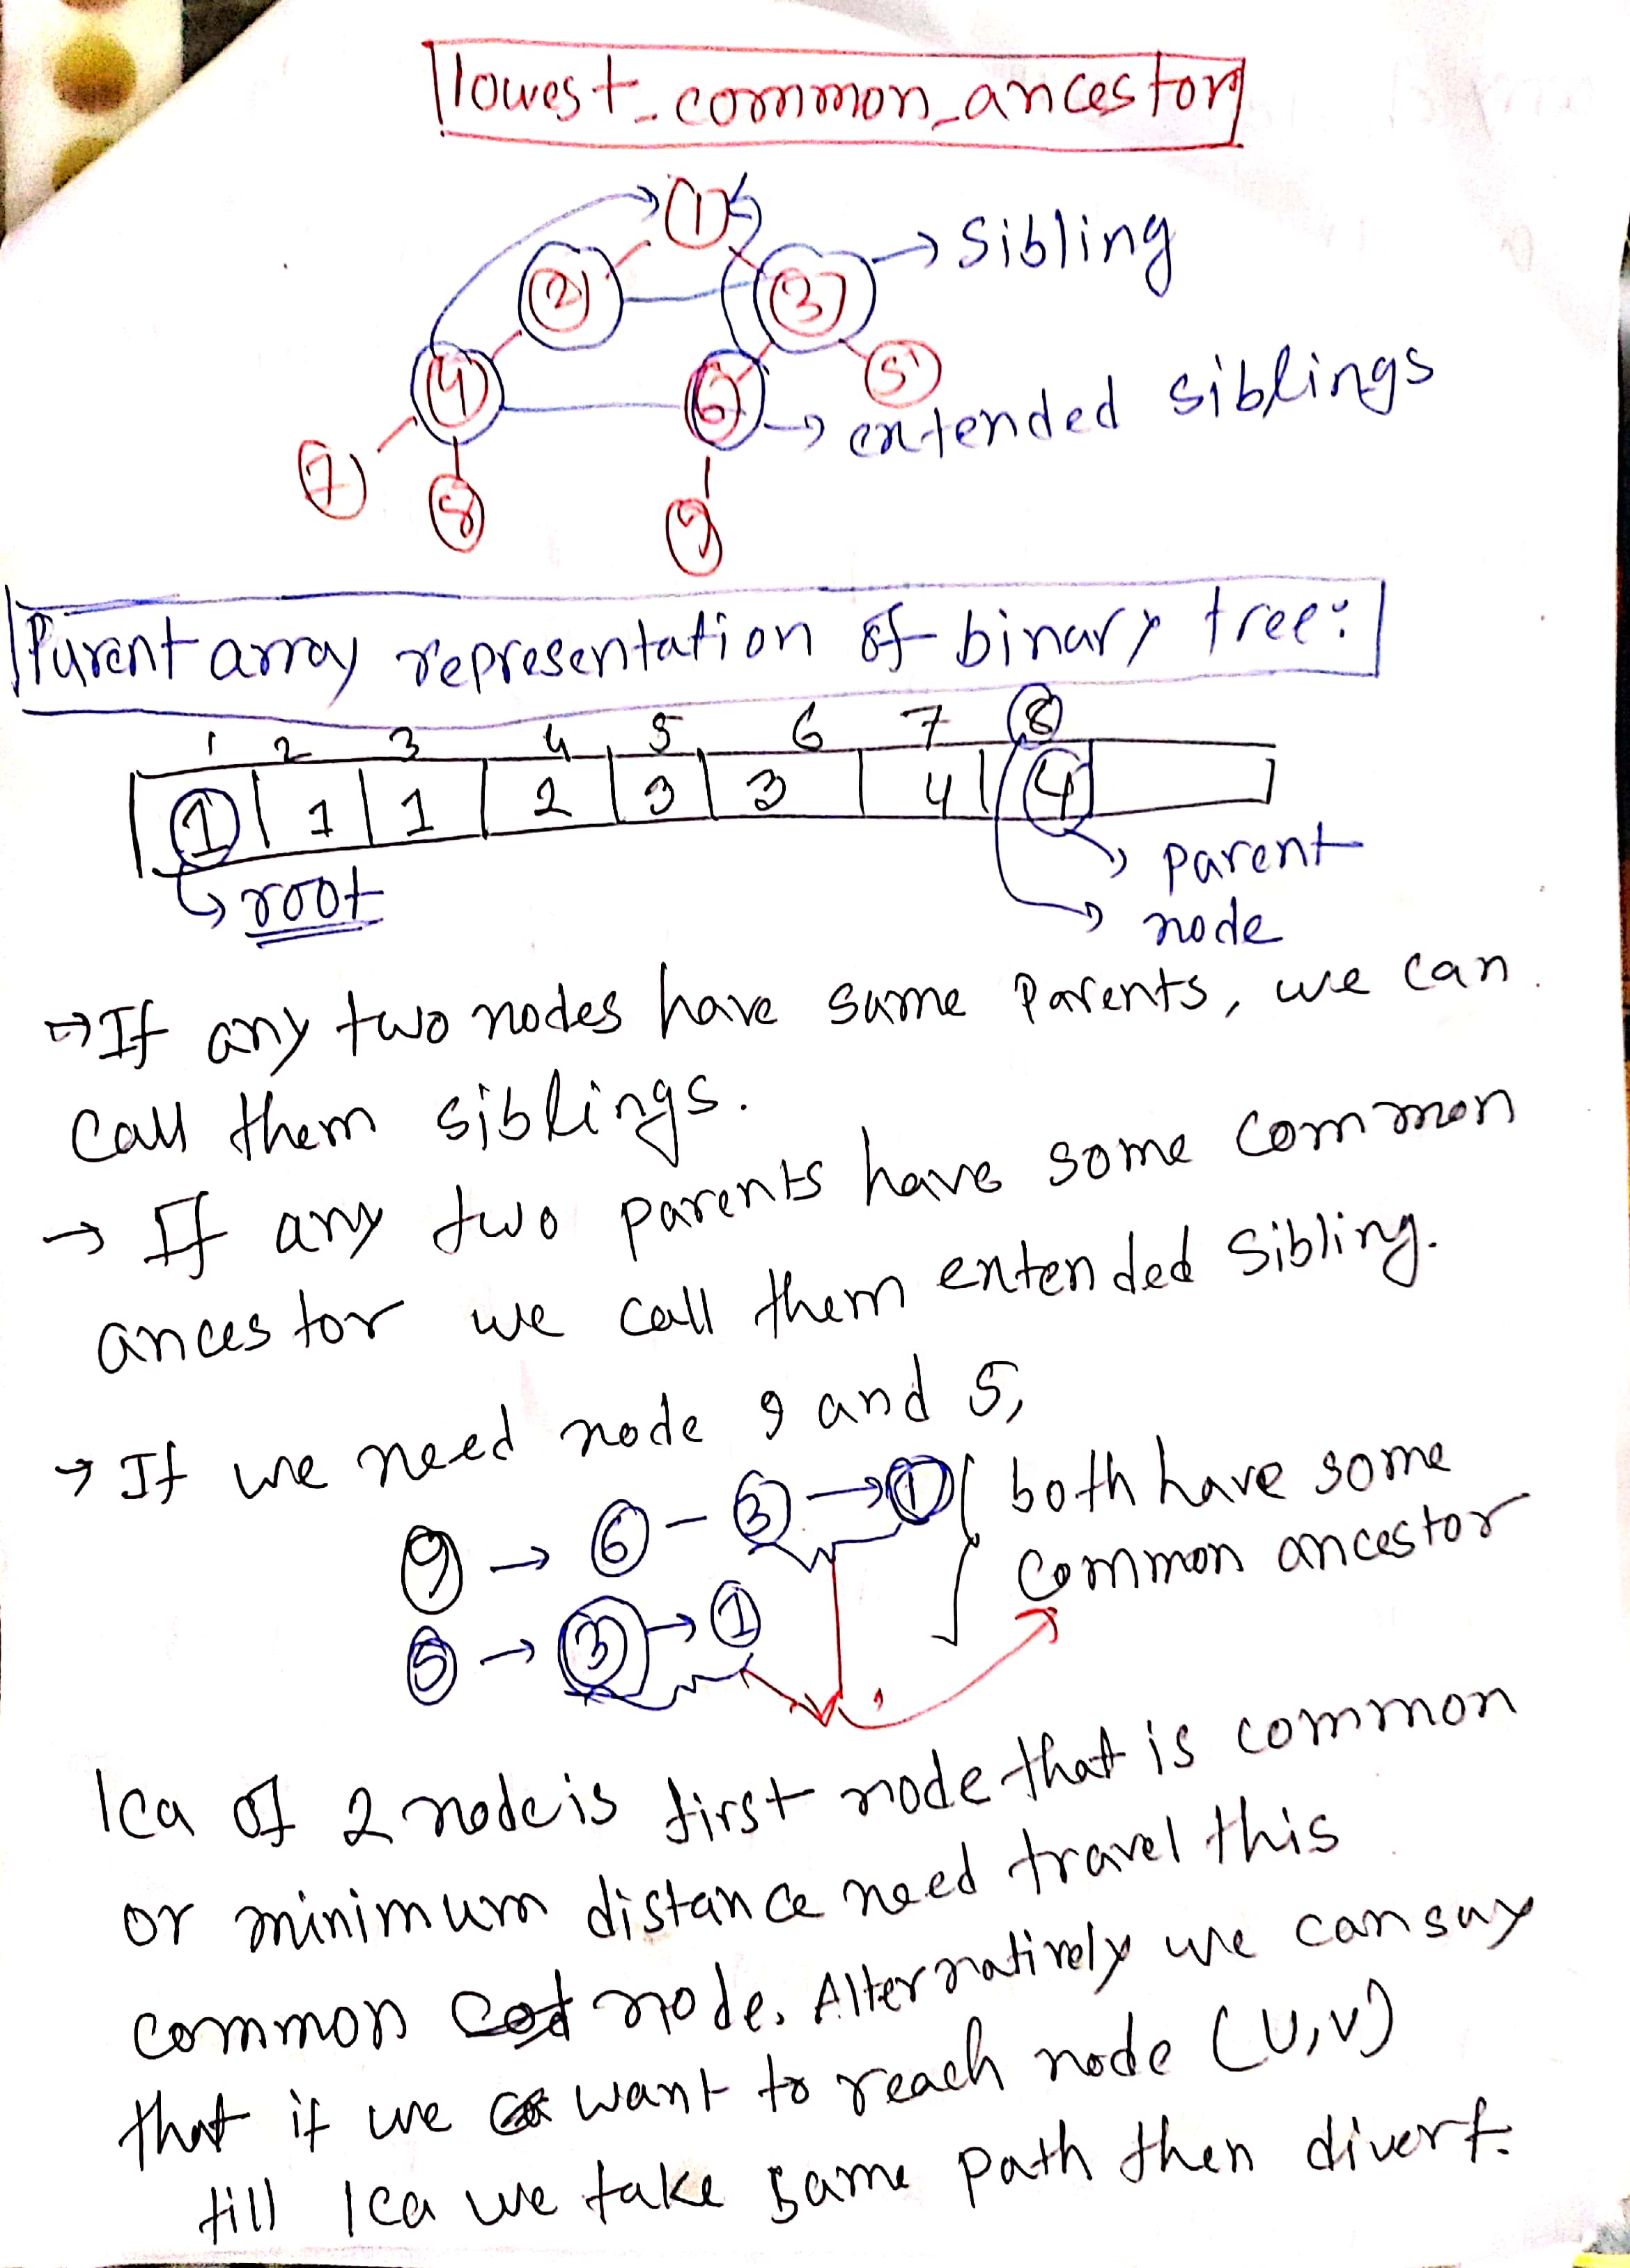 lowest_common_ancestor
1
2 3 → Sibling
4 6 5
→ extended siblings
7 8 9
Parent array representation of binary tree:
1 2 3 4 5 6 7 8
1 1 1 2 3 3 4 4
→ parent
→ root
→ node
→ If any two nodes have same Parents, we can
Call them siblings.
→ If any two parents have some common
ancestor we call them extended sibling.
→ If we need node 9 and 5,
9 → 6 – 3 → 1 both have some
common ancestor
5 → 3 → 1
lca of 2 node is first node that is common
or minimum distance need travel this
common node. Alternatively we can say
that if we want to reach node (U,V)
till lca we take same path then divert.